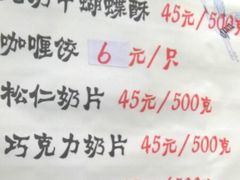 牛蝴蝶酥 45元/500克
咖喱饺 6元/只
松仁奶片 45元/500克
巧克力奶片 45元/500克